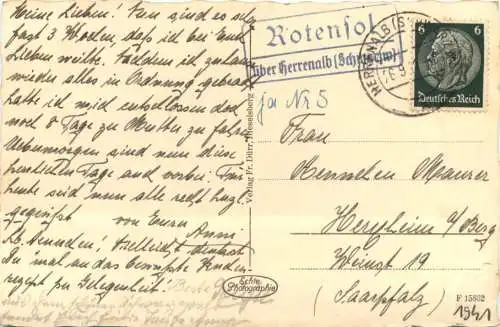 Meine Lieben! Nun sind es schon
fast 3 Wochen, daß ich bei Euch
Lieben weilte. Nachdem ich zuhause
wieder alles in Ordnung gebracht
hatte ich mich entschlossen doch
noch 8 Tage zu Mutter zu fahren
Uebermorgen sind nun diese
herrlichen Tage auch vorbei.
seid nun alle recht herzl.
gegrüßt von Eurer Anni
Lb. Vielleicht denkst
Du 'mal an das bewußte
rezept zu Gelegenheit!
Beste
Rotensol
über Herrenalb (Schwarzw)
HERRENALB (S
6
6
Deutsches Reich
ja Nr 5
Frau
Aennchen Maurer
Herxheim a/Berg
Weingt 19
(Saarpfalz)
Verlag Fr. Dürr,
Echte
Photographie
F 15802
1941